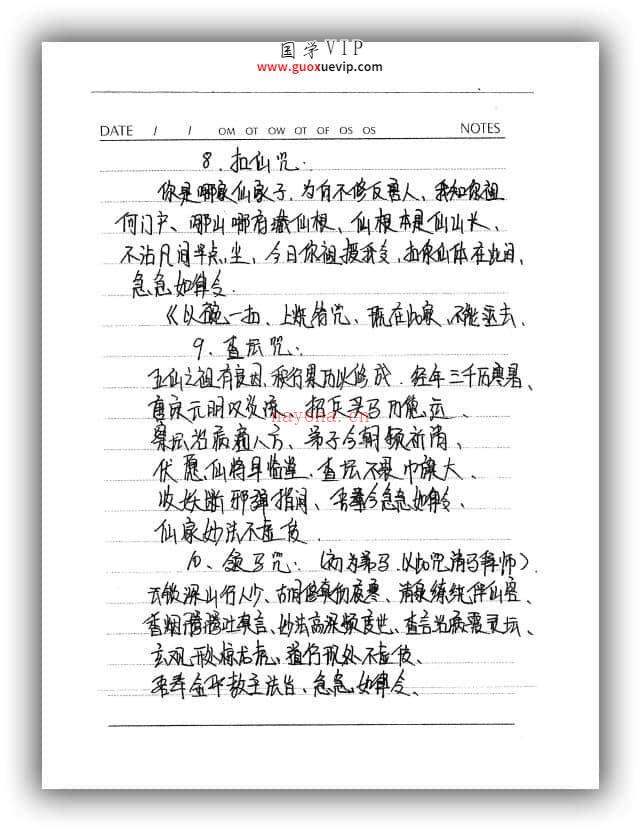 国学VIP
www.guoxuevip.com
DATE / / OM OT OW OT OF OS OS NOTES
8. 扣仙咒:
你是哪家仙家子、为何不修反害人、我知你祖
何门户、哪山哪府藏仙根、仙根本是仙山长、
不沾凡间半点尘、今日你祖授我令、扣你仙体在此间、
急急如律令.
《以碗一扣、上烧符咒、现在此家、不能再去、
9. 查坛咒:
五仙之祖有良因、飛行累功火修成. 经年三千万寒暑、
唐宋元明以 招兵买马 
nayona.cn
坛治病 人方、弟子今朝频祈消、
伏愿仙将早临坛、查坛不畏巾旗大、
收妖断邪弹指间、吾奉令急急如律令、
仙家妙法不虚传.
10、领马咒: (初为弟马、以此咒清马拜师).
云微深山行人少、古洞修真伤夜寒、清泉练绕伴仙客、
香烟腾腾吐真言、妙法高深频度世、查言治病需灵坛、
玄观 惊 虎、道行 处不虚传、
吾奉金华教主法旨、急急如律令、